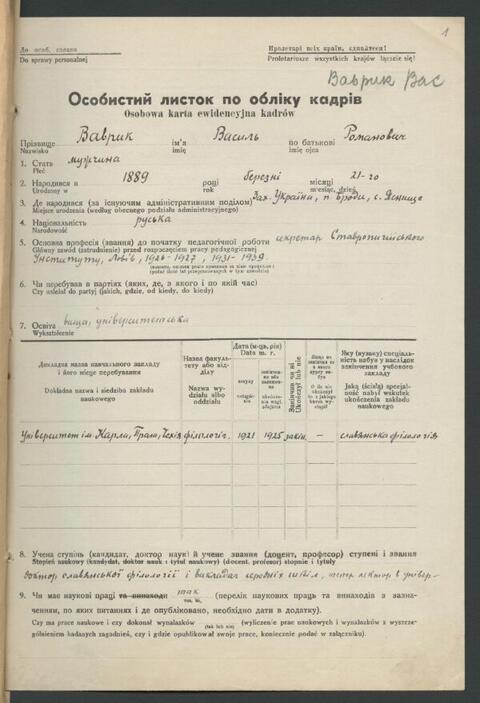 1
До особ. справи
Do sprawy personalnej
Пролетарі всіх країн, єднайтеся!
Proletariusze wszystkich krajów łączcie się!
Ваврик Вас
Особистий листок по обліку кадрів
Osobowa karta ewidencyjna kadrów
Прізвище Ваврик ім'я Василь по батькові Романович
Nazwisko imię imię ojca
1. Стать мужчина
Płeć
2. Народився в 1889 році березні місяці 21-го
Urodzony w rok miesiąc, dzień
3. Де народився (за існуючим адміністративним поділом) Зах. Україна, п. Броди, с. Яснище
Miejsce urodzenia (według obecnego podziału administracyjnego)
4. Національність руська
Narodowość
5. Основна професія (звання) до початку педагогічної роботи секретар Ставропигійського
Główny zawód (zatrudnienie) przed rozpoczęciem pracy pedagogicznej
Інституту, Львів, 1926-1927, 1931-1939.
6. Чи перебував в партіях (яких, де, з якого і по який час)
Czy należał do partyj (jakich, gdzie, od kiedy, do kiedy)
7. Освіта вища, університетська
Wykształcenie
Докладна назва навчального закладу і його місце перебування
Dokładna nazwa i siedziba zakładu naukowego
Назва факультету або відділу
Nazwa wydziału albo oddziału
Дата (м-ць, рік)
Data m. r.
вступу
Закінчив чи ні
Ukończył lub nie
Яку (вузьку) спеціальність набув у наслідок закінчення учбового закладу
Jaką (ścisłą) specjalność nabył wskutek ukończenia zakładu naukowego
Університет ім. Карла, Прага, Чехія філологіч. 1921 1925 закін. — славянська філологія
8. Учена ступінь (кандидат, доктор наук) й учене звання (доцент, професор) ступені і звання
Stopień naukowy (kandydat, doktor nauk i tytuł naukowy) (docent, profesor) stopnie i tytuły
доктор славянської філології і викладач середніх шкіл,
9. Чи має наукові праці та винаходи так (перелік наукових праць та винаходів з зазначенням, по яких питаннях і де опубліковано, необхідно дати в додатку).
так, ні,
Czy ma prace naukowe i czy dokonał wynalazków (tak lub nie) (wyliczenie prac naukowych i wynalazków z wyszczególnieniem badanych zagadnień, czy i gdzie opublikował swoje prace, koniecznie podać w załączniku).